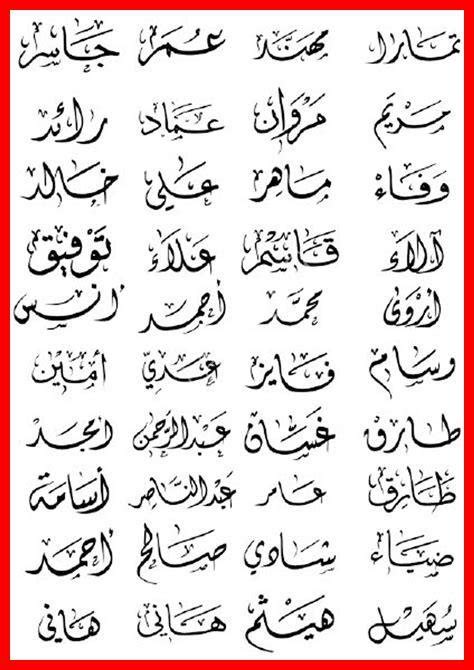 تمارا مهند عمر جاسر
مريم مروان عماد رائد
وفاء ماهر علي خالد
آلاء قاسم علاء توفيق
أروى محمد أحمد أنس
وسام فايز عدي أمين
طارق غسان عبدالرحمن امجد
طارق عامر عبدالناصر أسامة
ضياء شادي صالح أحمد
سهيل هيثم هاني هاني